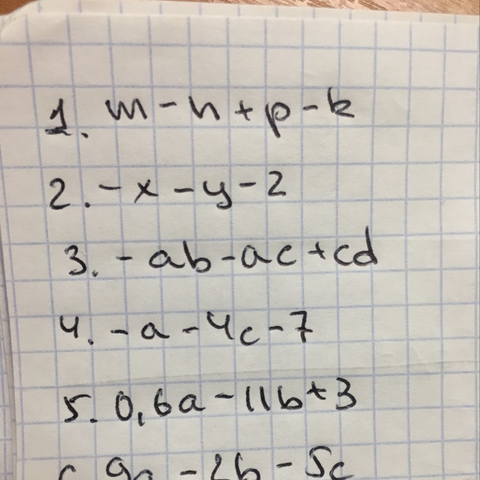 1. m - n + p - k
2. - x - y - 2
3. - ab - ac + cd
4. - a - 4c - 7
5. 0,6a - 11b + 3
6. 9a - 2b - 5c